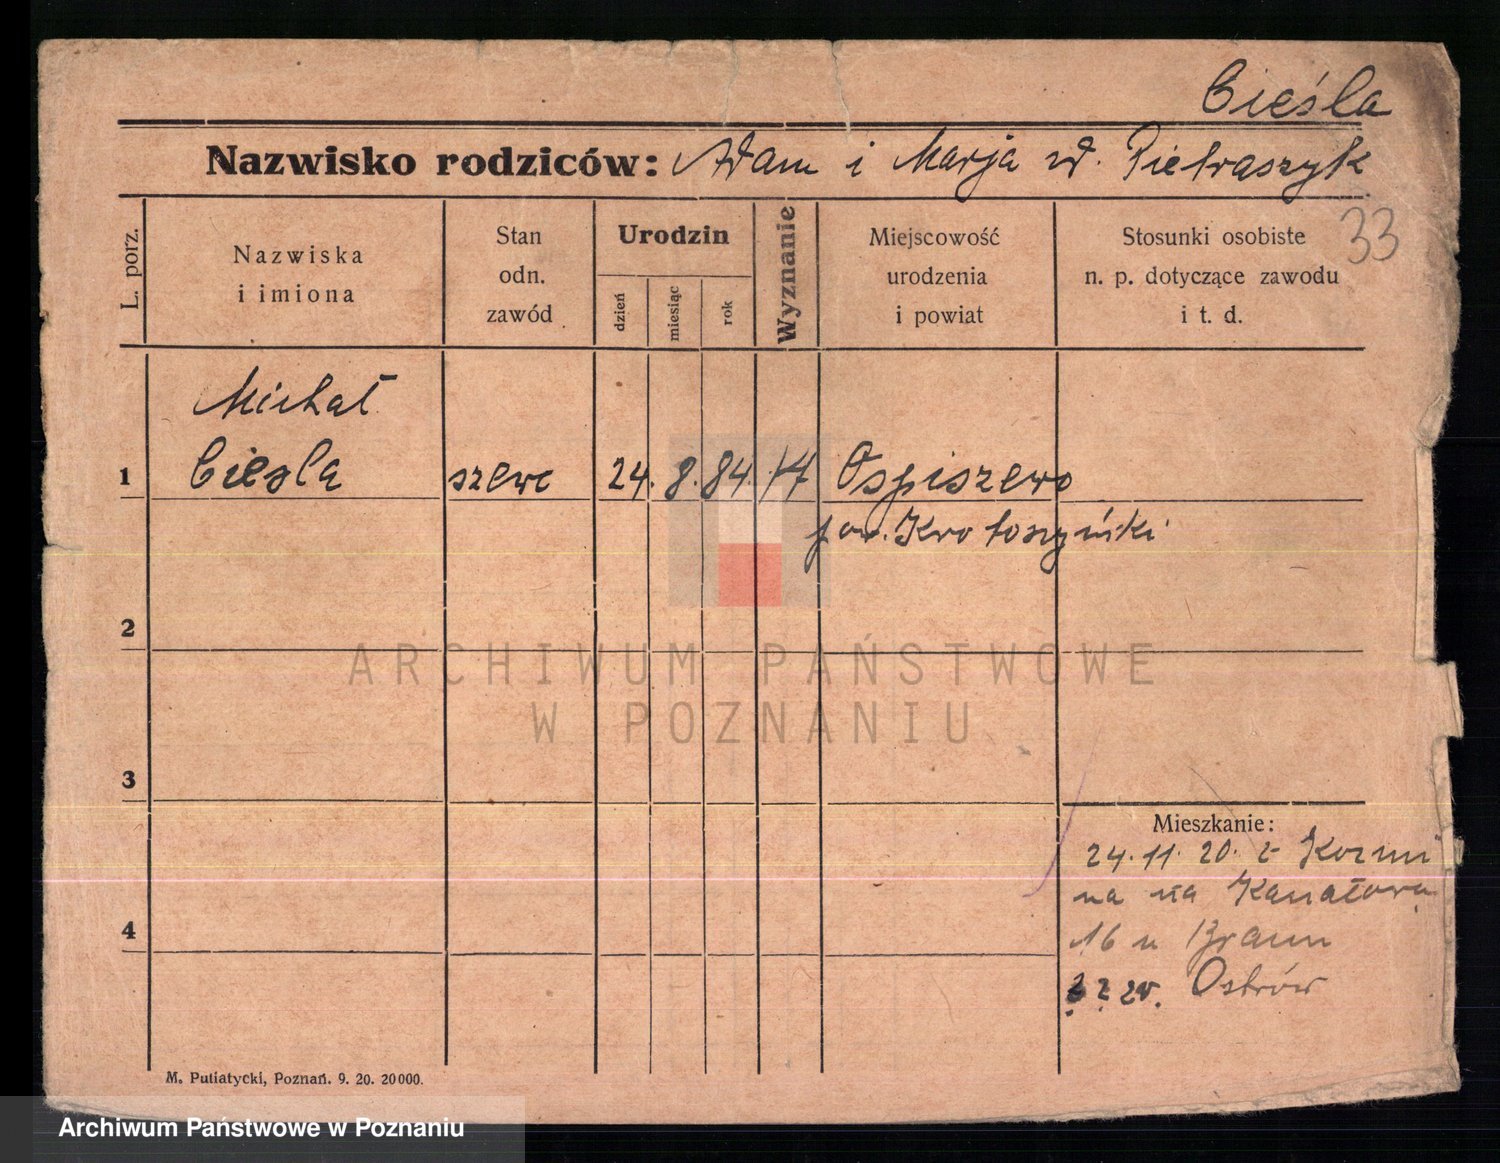 Cieśla
Nazwisko rodziców: Adam i Marja zd. Pietraszyk
33
L. porz.
Nazwiska
i imiona
Stan
odn.
zawód
Urodzin
dzień
miesiąc
rok
Wyznanie
Miejscowość
urodzenia
i powiat
Stosunki osobiste
n. p. dotyczące zawodu
i t. d.
Michał
1 Cieśla szewc 24. 8. 84. Ospiszewo
pow. Krotoszyński
2
ARCHIWUM PAŃSTWOWE
W POZNANIU
3
Mieszkanie:
24.11.20. z Kozmi
na na Kanałowa
4
16 u Braun
Ostrów
M. Putiatycki, Poznań. 9. 20. 20000.
Archiwum Państwowe w Poznaniu